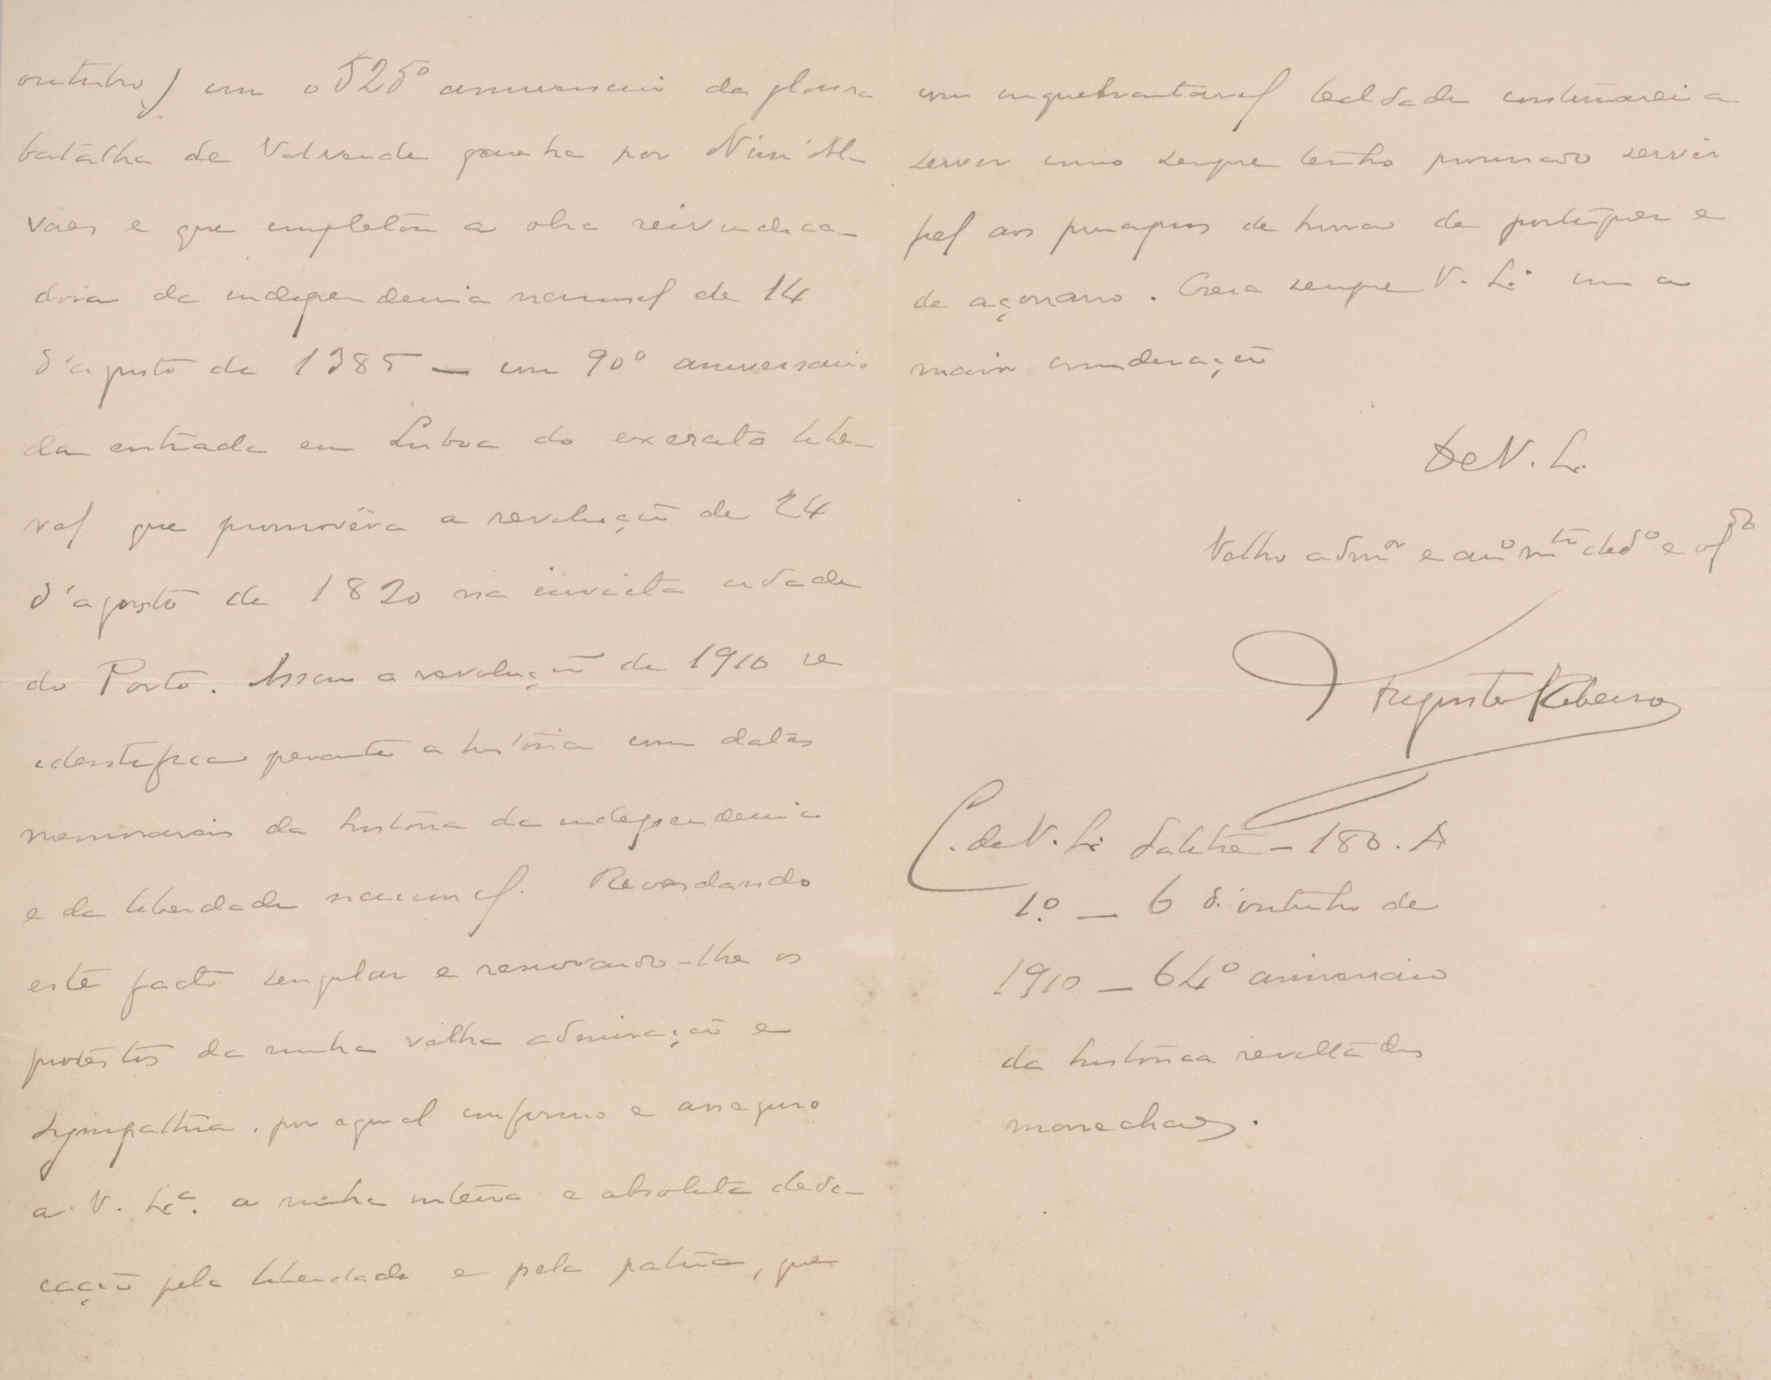 outubro) com o 525º anniversario da gloriosa
batalha de Valverde ganha por Nun'Al-
vares e que completou a obra reivindica-
dora da independencia nacional de 14
d'agosto de 1385 — com 90º aniversario
da entrada em Lisboa do exercito libe-
ral que promovêra a revolução de 24
d'agosto de 1820 na invicta cidade
do Porto. Assim a revolução de 1910 se
identifica perante a história com datas
memoraveis da história da independencia
e da liberdade nacional. Recordando
este facto singular e renovando-lhe os
protestos da minha velha admiração e
sympathia, por egual confirmo e asseguro
a V. Exª. a minha inteira e absoluta dedi-
cação pela liberdade e pela patria, que
com inquebrantavel lealdade continuarei a
servir como sempre tenho procurado servir
fiel aos principios de honra de portuguez e
de açoriano. Creia sempre V. Ex. com a
maior consideração
De V. Ex.
Velho admor e amo mto dedo e obgdo
Augusto Ribeiro
C. de V. Ex. Salitre – 180. A
1.º — 6 d'outubro de
1910 — 64º aniversario
da histórica revolta dos